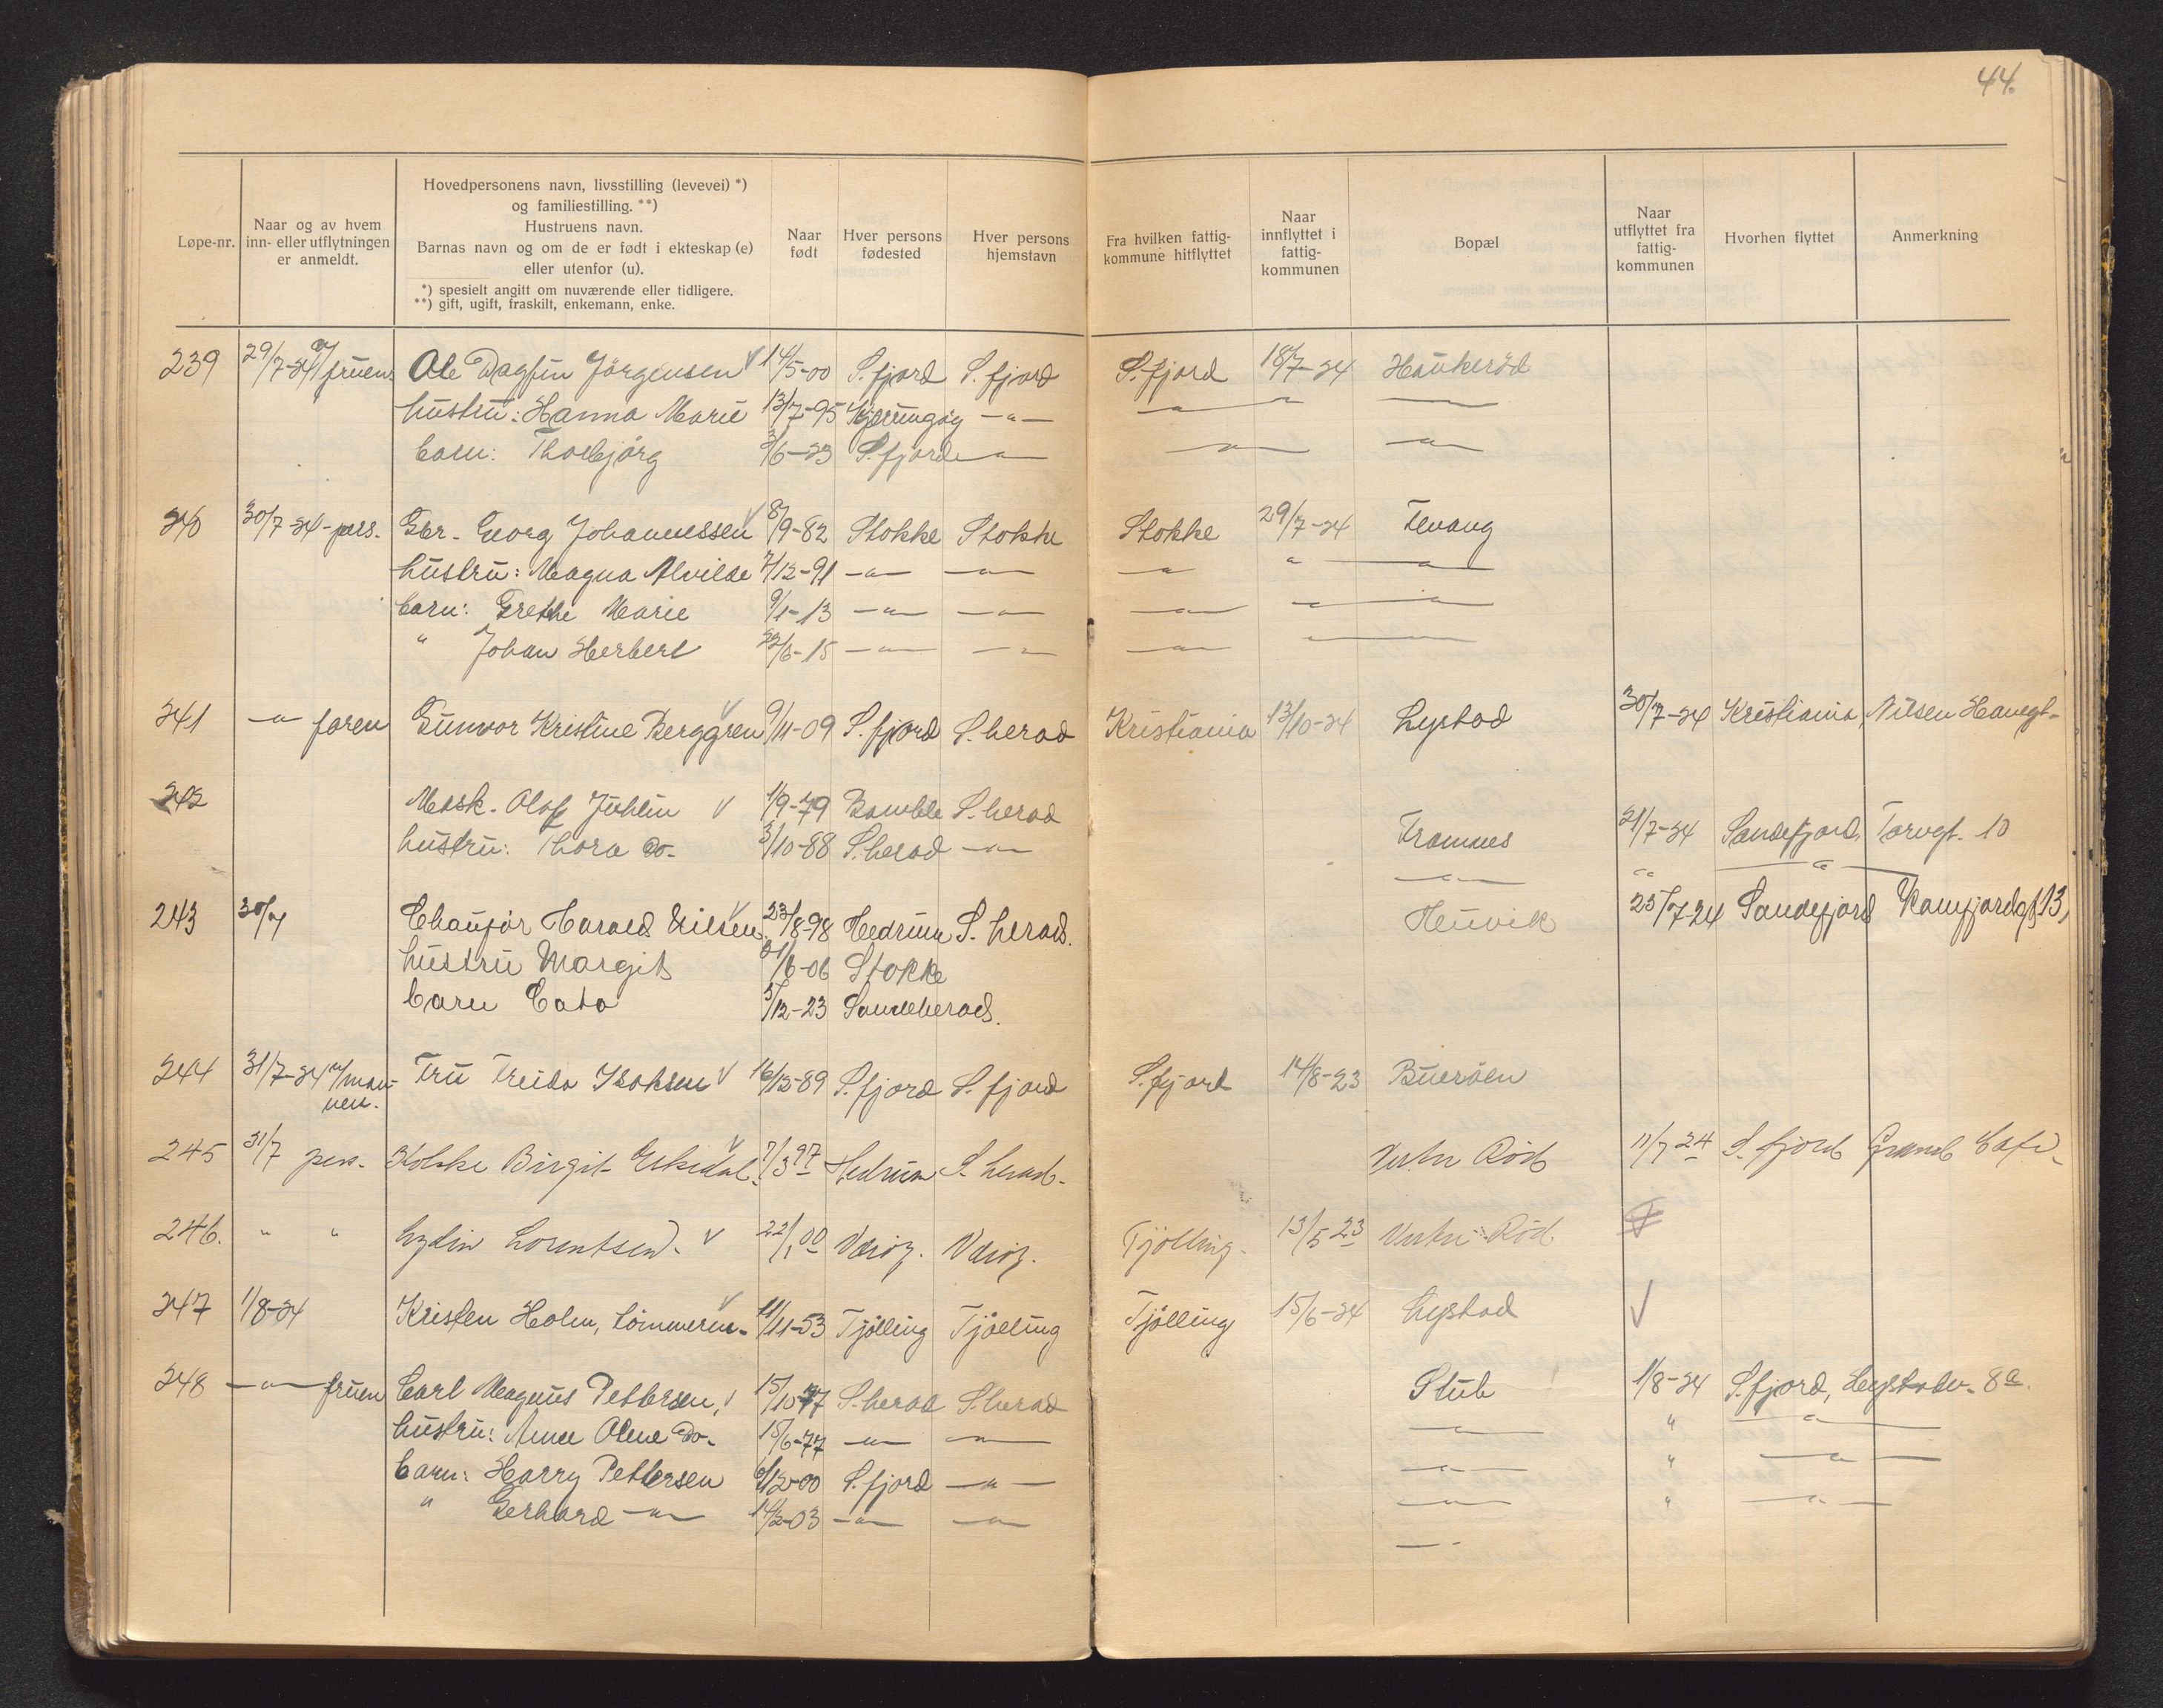 44.
Løpe-nr.
Naar og av hvem
inn- eller utflytningen
er anmeldt.
Hovedpersonens navn, livsstilling (levevei) *)
og familiestilling. **)
Hustruens navn.
Barnas navn og om de er født i ekteskap (e)
eller utenfor (u).
*) spesielt angitt om nuværende eller tidligere.
**) gift, ugift, fraskilt, enkemann, enke.
Naar
født
Hver persons
fødested
Hver persons
hjemstavn
Fra hvilken fattig-
kommune hitflyttet
Naar
innflyttet i
fattig-
kommunen
Bopæl
Naar
utflyttet fra
fattig-
kommunen
Hvorhen flyttet
Anmerkning
239 29/7-24 v/fruen Ole Dagfin Jörgensen 14/5-00 S.fjord S.fjord S.fjord 18/7-24 Haukeröd
hustru: Hanna Marie 13/7-95 Kjerringöy -"- -"- " -"-
barn: Thorbjörg 3/6-23 S.fjord -"- -"- -"-
240 30/7-24 - pers. Gbr. Georg Johannessen 8/9-82 Stokke Stokke Stokke 29/7-24 Fevang
hustru: Magna Alvilde 7/12-91 -"- -"- -"- " -"-
barn: Grethe Marie 9/1-13 -"- -"- -"- -"- -"-
" Johan Herbert 22/6-15 -"- -"- -"- -"-
241 -"- faren Gunvor Kristine Berggren 9/11-09 S.fjord S.herad Kristiania 13/10-24 Lystad 30/7-24 Kristiania, Nilsen Havegt-
242 Mask. Olof Juhlin 1/9-79 Bamble S.herad Framnes 21/7-24 Sandefjord, Torvgt. 10
hustru: Thora do- 3/10-88 S.herad -"- -"- " -"-
243 30/7 Chauför Harald Nilsen 23/8-98 Hedrum S. herad. Heuvik 25/7-24 Sandefjord Kamfjordgt 13,
hustru Margit 21/6-06 Stokke
barn Cato 5/12-23 Sandeherad.
244 31/7-24 v/man-
nen. Fru Freida Isaksen 16/12-89 S.fjord S.fjord S.fjord 14/8-23 Bueröen
245 31/7 pers. Kokke Birgit Eskedal. 7/3 97 Hedrum S. herad. Vestre Röd 11/7 24 S.fjord Grand Café.
246. " " Lydia Lorentsen. 22/1 00 Tjölling. 13/5 23 Vestre Röd.
247 1/8-24 Kristen Holm, tömmerm. 11/11-53 Tjölling Tjölling Tjölling 15/6-24 Lystad
248 -"- fruen Carl Magnus Pettersen, 15/10-77 S.herad S.herad Stub 1/8-24 S.fjord, Lystadv. 8a.
hustru: Anne Oline do- 15/6-77 -"- -"- -"- " -"-
barn: Harry Pettersen 6/12-00 S.fjord -"- -"- " -"-
" Gerhard -"- 14/2-03 -"- -"- -"- " -"-
-"-